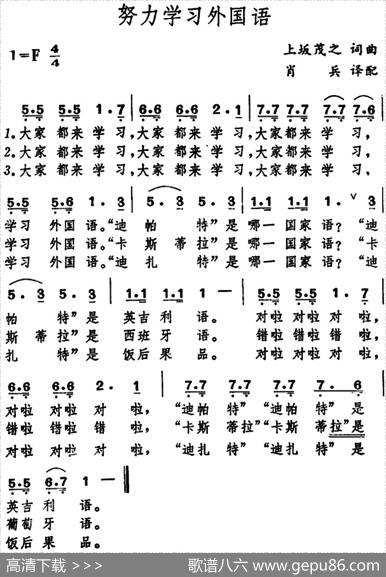 努力学习外国语
1=F 4/4
上坂茂之 词曲
肖 兵 译配
5.5 5.5 1.7 6.6 6.6 2.1 7.7 7.7 7.7 6.6
1.大家 都来 学习,大家 都来 学习,大家 都来 学 习,
2.大家 都来 学习,大家 都来 学习,大家 都来 学 习,
3.大家 都来 学习,大家 都来 学习,大家 都来 学 习,
5.5 5.6 1.3 5.3 5.3 1.1 1.1 1. ∨ 3
学习 外国 语。“迪 帕 特”是 哪一 国家 语? “迪
学习 外国 语。“卡 斯 蒂拉”是 哪一 国家 语? “卡
学习 外国 语。“迪 扎 特”是 哪一 国家 语? “迪
5.3 5.3 1.1 1.1 1 — 5.5 5.5 1.7
帕 特”是 英吉 利 语。 对啦 对啦 对 啦,
斯 蒂拉”是 西班 牙 语。 错啦 错啦 错 啦,
扎 特”是 饭后 果 品。 对啦 对啦 对 啦,
6.6 6.6 2.1 7.7 7.7 7.7 7.7 7.6
对啦 对啦 对 啦, “迪帕 特” “迪帕 特” 是
错啦 错啦 错 啦, “卡斯 蒂拉”“卡斯 蒂拉”是
对啦 对啦 对 啦, “迪扎 特” “迪扎 特” 是
5.5 6.7 1 —
英吉 利 语。
葡萄 牙 语。
饭后 果 品。
高清下载 >>> 歌谱八六 www.gepu86.com